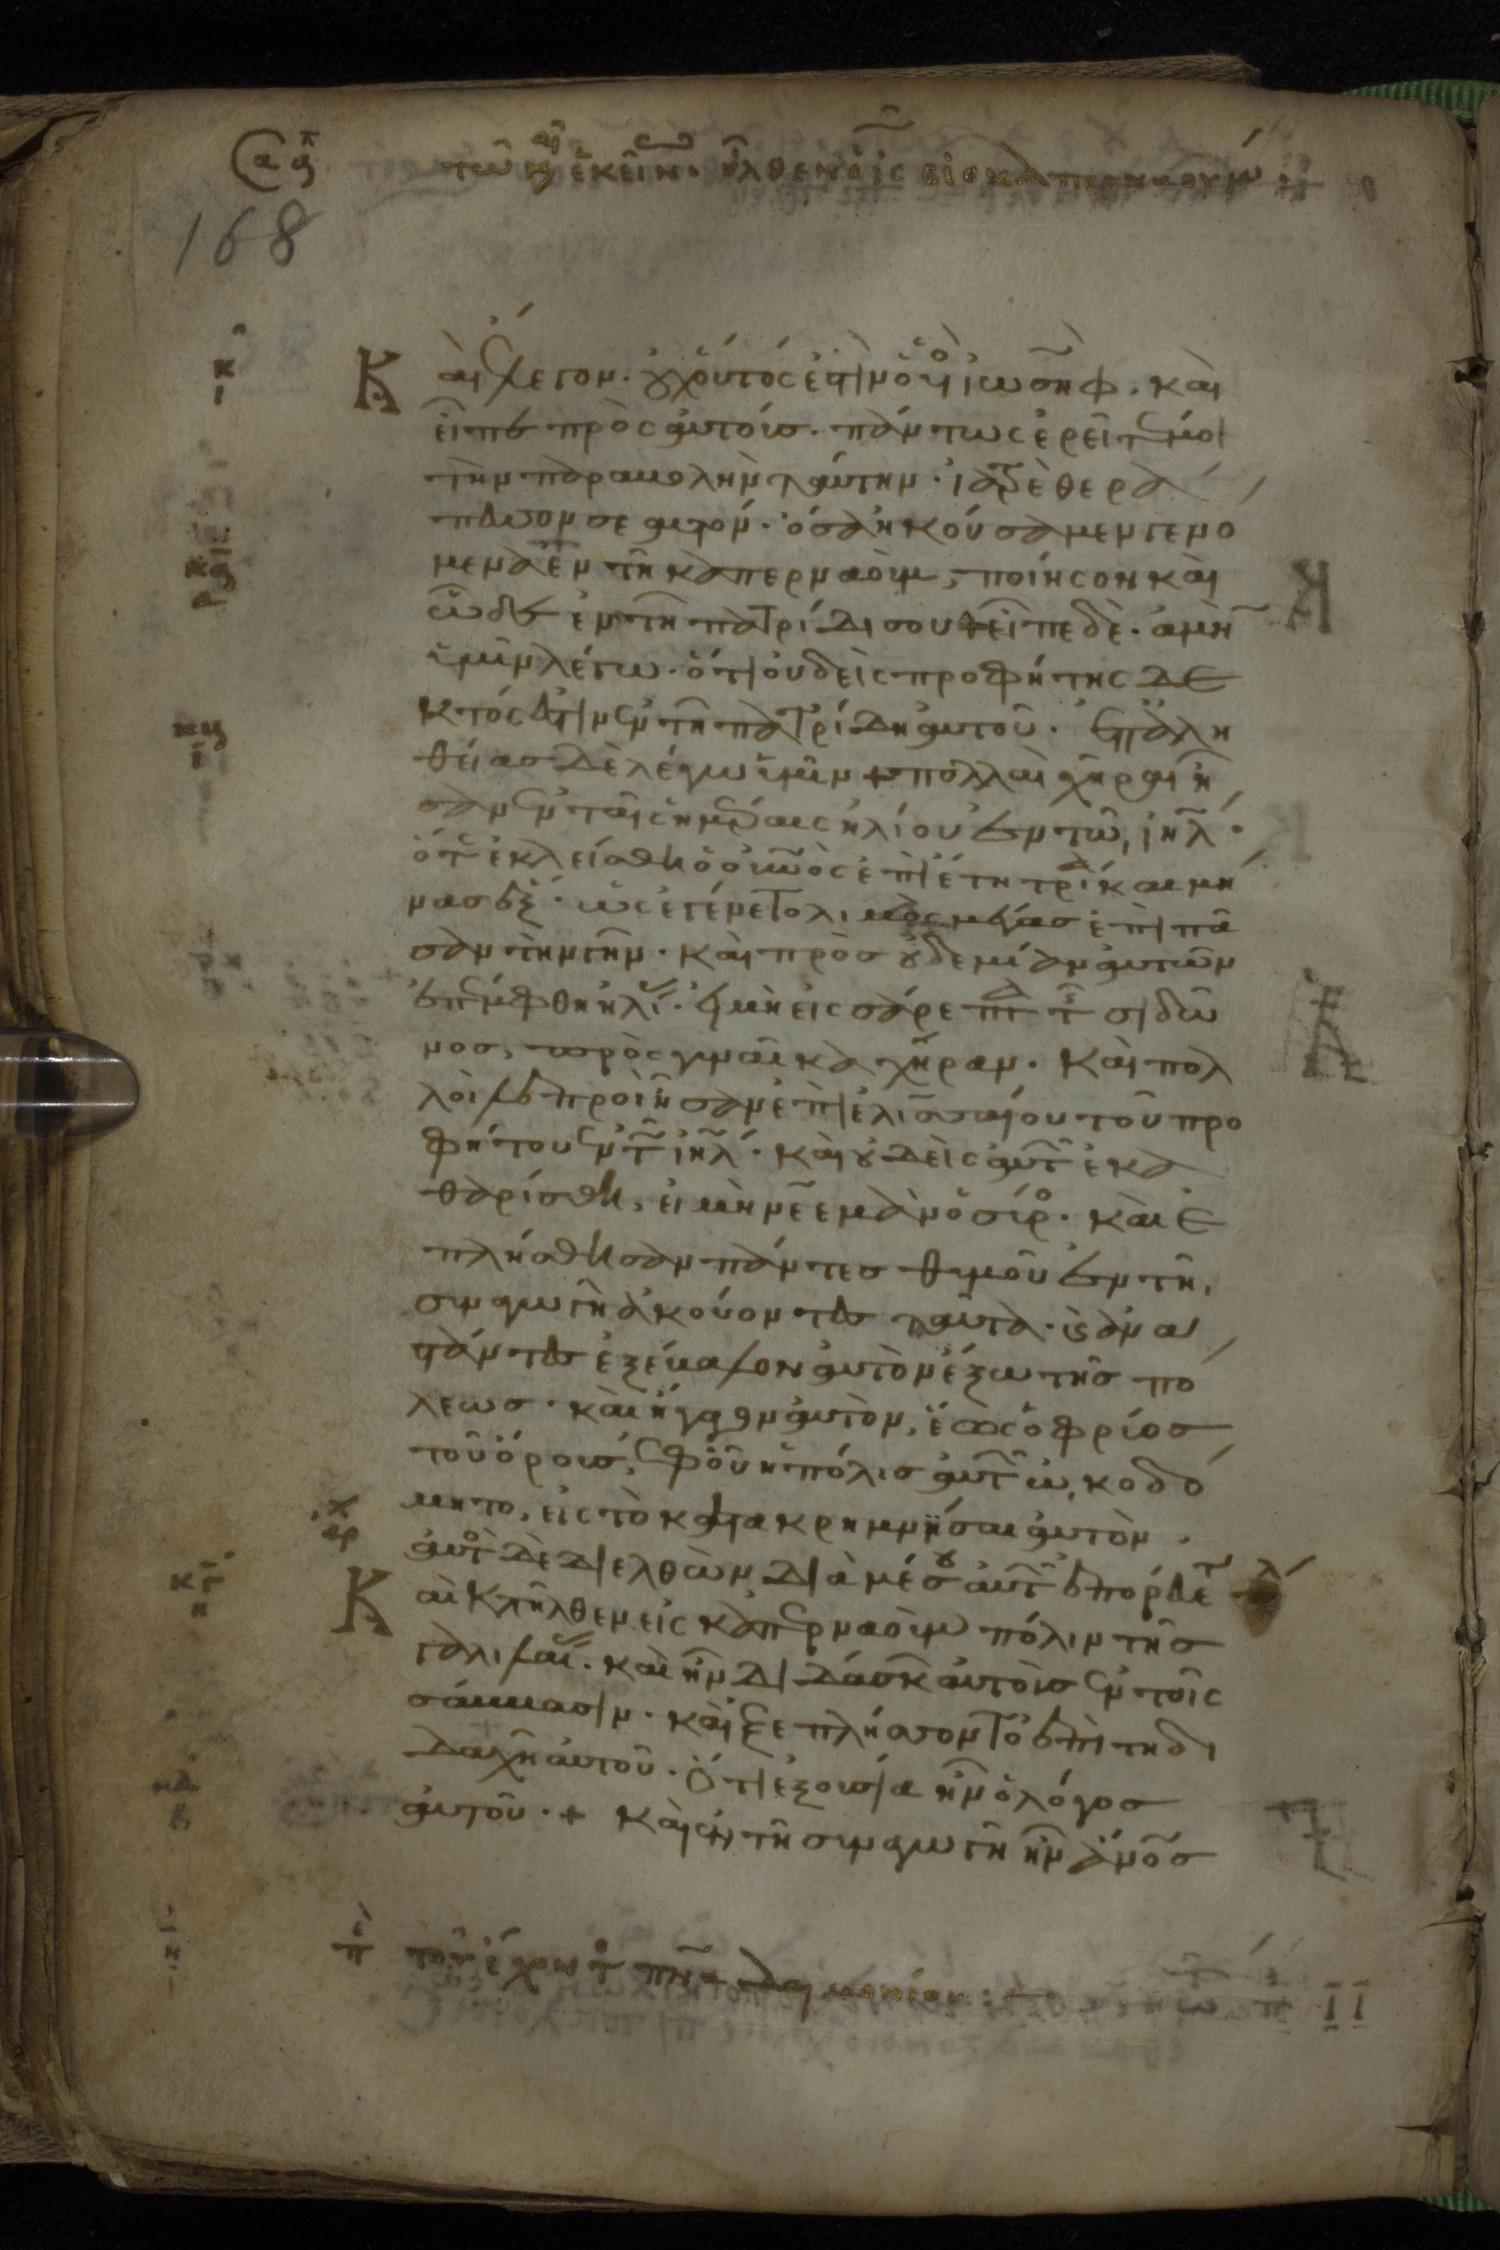 τῶ κ(αι)ρ(ῶ) ἐκείν(ω). ἦλθεν ὁ ἰς εἰς καπερναούμ
168
Καὶ ἔλεγον. οὐχ οὗτός ἐστιν ὁ υἱὸς ἰωσὴφ. καὶ
εἶπε πρὸς αὐτοὺς. πάντως ἐρεῖτέ μοι
τὴν παραβολὴν ταύτην. ἰατρὲ θερά
πευσον σεαυτόν. ὅσα ἠκούσαμεν γενό
μενα ἐν τῆ καπερναοὺμ, ποίησον καὶ
ὧδε ἐν τῆ πατρίδι σου + εἶπε δὲ. ἀμὴν
ὑμῖν λέγω. ὅτι οὐδεὶς προφήτης δε
κτός ἐστιν ἐν τῆ πατρίδη αὐτοῦ. ἐπ' ἀλη
θείας δὲ λέγω ὑμῖν + πολλαὶ χῆραι ἦ
σαν ἐν ταῖς ἡμέραις ἠλίου ἐν τῶ ιηλ.
ὅτε ἐκλείσθη ὁ οὐνος ἐπὶ ἔτη τρία καὶ μῆ
νας ἕξ. ὡς ἐγένετο λιμὸς μέγας ἐπὶ πᾶ
σαν τὴν γῆν. καὶ πρὸς οὐδεμίαν αὐτῶν
ἐπέμφθη ἠλί(ας). εἰ μὴ εἰς σάρεπτα τῆς σιδῶ
νος, πρὸς γυναῖκα χῆραν. Καὶ πολ
λοὶ λεπροὶ ἦσαν ἐπὶ ἐλισσαίου τοῦ προ
φήτου ἐν τῶ ιηλ. καὶ οὐδεὶς αὐτῶν ἐκα
θαρίσθη, εἰ μὴ νεεμὰν ὁ σύρος. καὶ ἐ
πλήσθησαν πάντες θυμοῦ ἐν τῆ
συναγωγῆ ἀκούοντες ταῦτα. καὶ ἀνα
στάντες ἐξέβαλον αὐτὸν ἔξω τῆς πό
λεως. καὶ ἤγαγον αὐτὸν, ἕως ὀφρύος
τοῦ ὄρους, ἐφ' οὗ ἡ πόλις αὐτῶν ὠκοδό
μητο, εἰς τὸ κατακρημνῆσαι αὐτὸν.
αὐτὸς δὲ διελθὼν διὰ μέσου αὐτῶν ἐπορεύετο
Καὶ κατῆλθεν εἰς καπερναοὺμ πόλιν τῆς
γαλιλαί(ας). καὶ ἦν διδάσκων αὐτοὺς ἐν τοῖς
σάββασιν. καὶ ἐξεπλήσσοντο ἐπὶ τῆ δι
δαχῆ αὐτοῦ. ὅτι ἐν ἐξουσία ἦν ὁ λόγος
αὐτοῦ. + Καὶ ἐν τῆ συναγωγῆ ἦν ἄνος
π(ερὶ) τοῦ ἔχοντος πνα δαιμονίου: